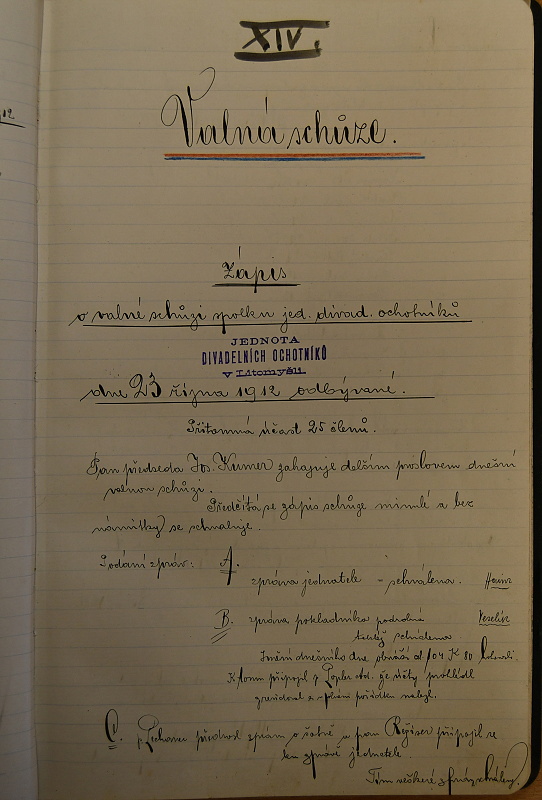 XIV.
Valná schůze.
Zápis
o valné schůzi spolku jed. divad. ochotníků
JEDNOTA
DIVADELNÍCH OCHOTNÍKŮ
v Litomyšli.
dne 23 října 1912 odbývané.
Přítomná účast 25 členů.
Pan předseda Jos. Kumer zahajuje delším proslovem dnešní
valnou schůzi.
Předčítá se zápis schůze minulé a bez
námitky se schvaluje.
Podání zpráv: A.
zpráva jednatele - schválena.
B. zpráva pokladníka podrobná
taktéž schválena
Jmění dnešního dne obnáší 104 K 80
K tomu připojil p že účty prohlédl
a v plném pořádku nalezl.
C. p. přednesl zprávu o šatně a pan Režiser připojil se
ku zprávě jednatele.
Tím veškeré zprávy schváleny.